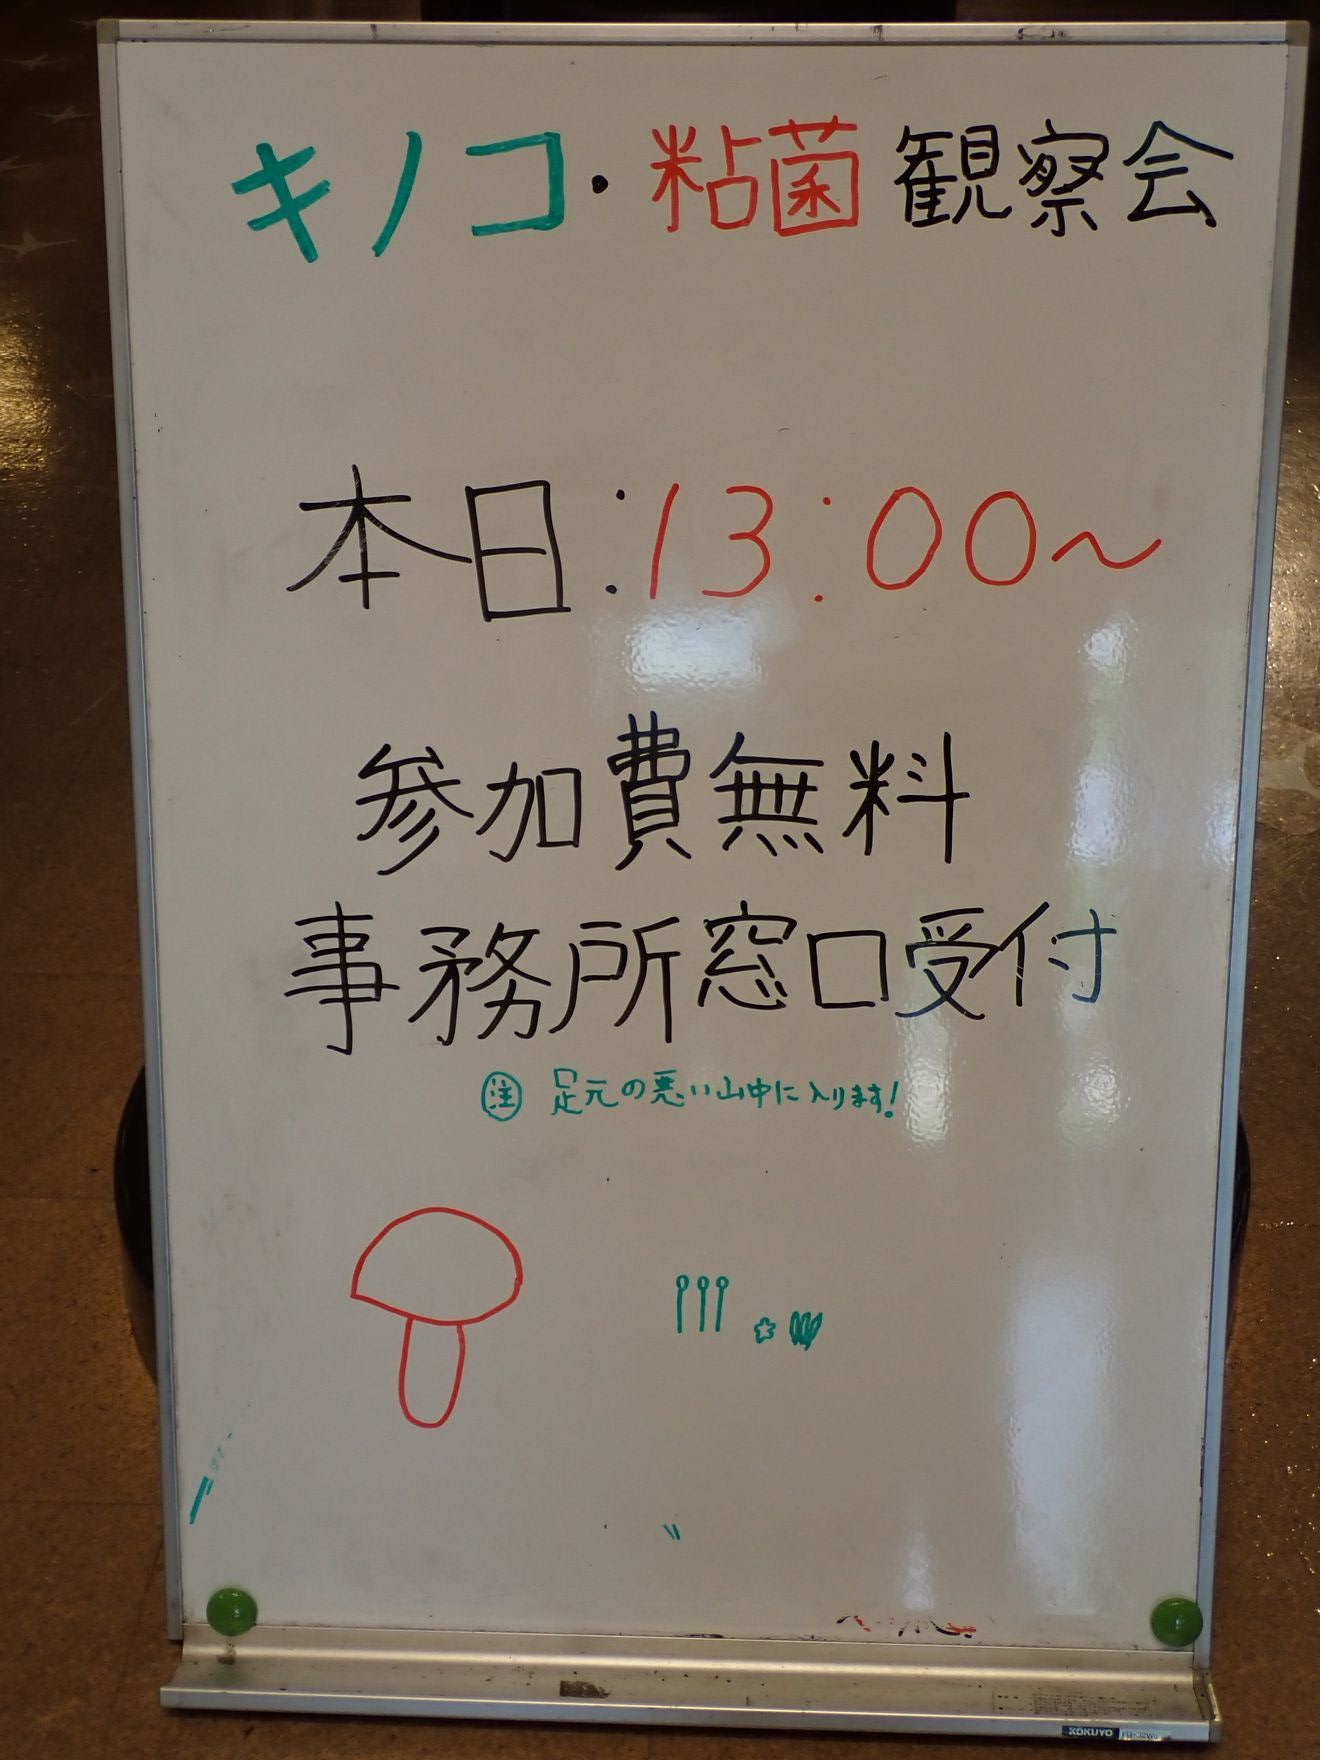 キノコ・粘菌観察会
本日:13:00~
参加費無料
事務所窓口受付
㊟ 足元の悪い山中に入ります!
KOKUYO